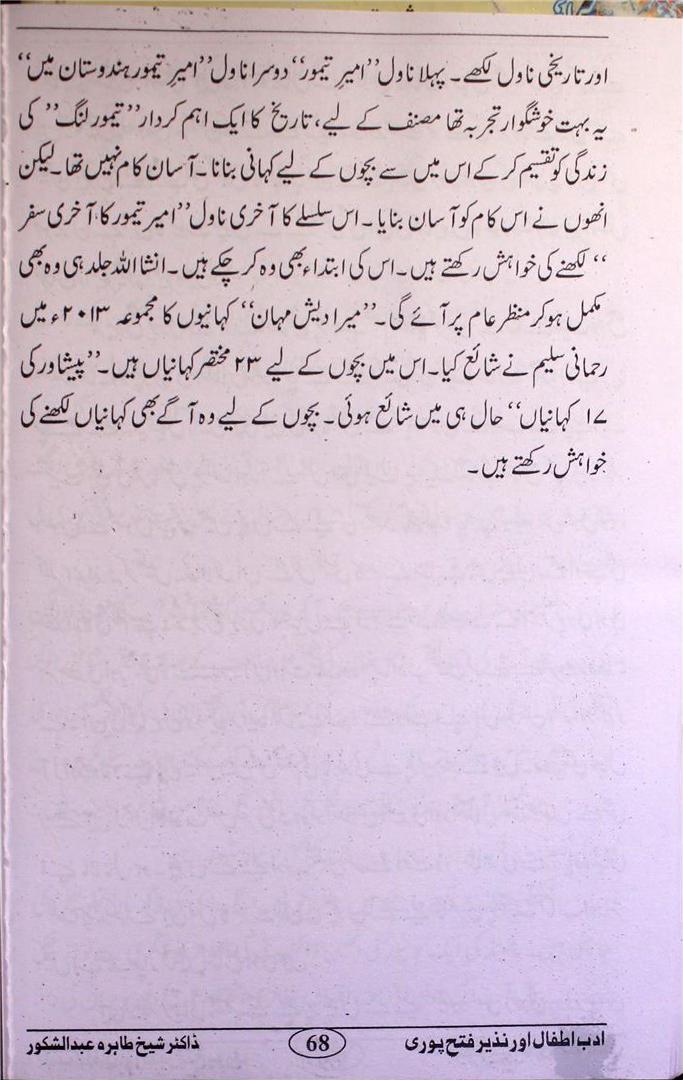 اور تاریخی ناول لکھے۔ پہلا ناول ’’امیرِ تیمور‘‘ دوسرا ناول ’’امیرِ تیمور ہندوستان میں‘‘
یہ بہت خوشگوار تجربہ تھا مصنف کے لیے، تاریخ کا ایک اہم کردار ’’تیمور لنگ‘‘ کی
زندگی کو تقسیم کر کے اس میں سے بچوں کے لیے کہانی بنانا۔ آسان کام نہیں تھا۔ لیکن
انھوں نے اس کام کو آسان بنایا۔ اس سلسلے کا آخری ناول ’’امیر تیمور کا، آخری سفر
‘‘ لکھنے کی خواہش رکھتے ہیں۔ اس کی ابتداء بھی وہ کر چکے ہیں۔ انشا اللہ جلد ہی وہ بھی
مکمل ہو کر منظر عام پر آئے گی۔ ’’میرا دیش مہان‘‘ کہانیوں کا مجموعہ ۲۰۱۳ء میں
رحمانی سلیم نے شائع کیا۔ اس میں بچوں کے لیے ۲۳ مختصر کہانیاں ہیں۔ ’’پیشاور کی
۱۷ کہانیاں‘‘ حال ہی میں شائع ہوئی۔ بچوں کے لیے وہ آگے بھی کہانیاں لکھنے کی
خواہش رکھتے ہیں۔
ادب اطفال اور نذیر فتح پوری 68 ڈاکٹر شیخ طاہرہ عبدالشکور